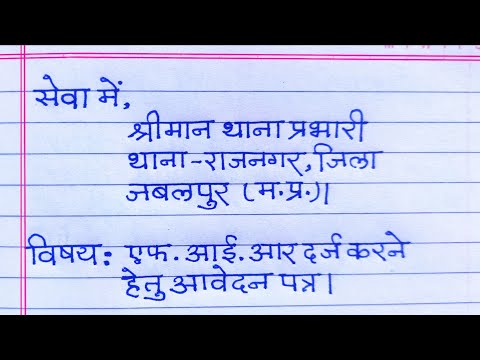 सेवा में,
श्रीमान थाना प्रभारी
थाना-राजनगर, जिला
जबलपुर (म.प्र.)।
विषय: एफ.आई.आर दर्ज करने
हेतु आवेदन पत्र।